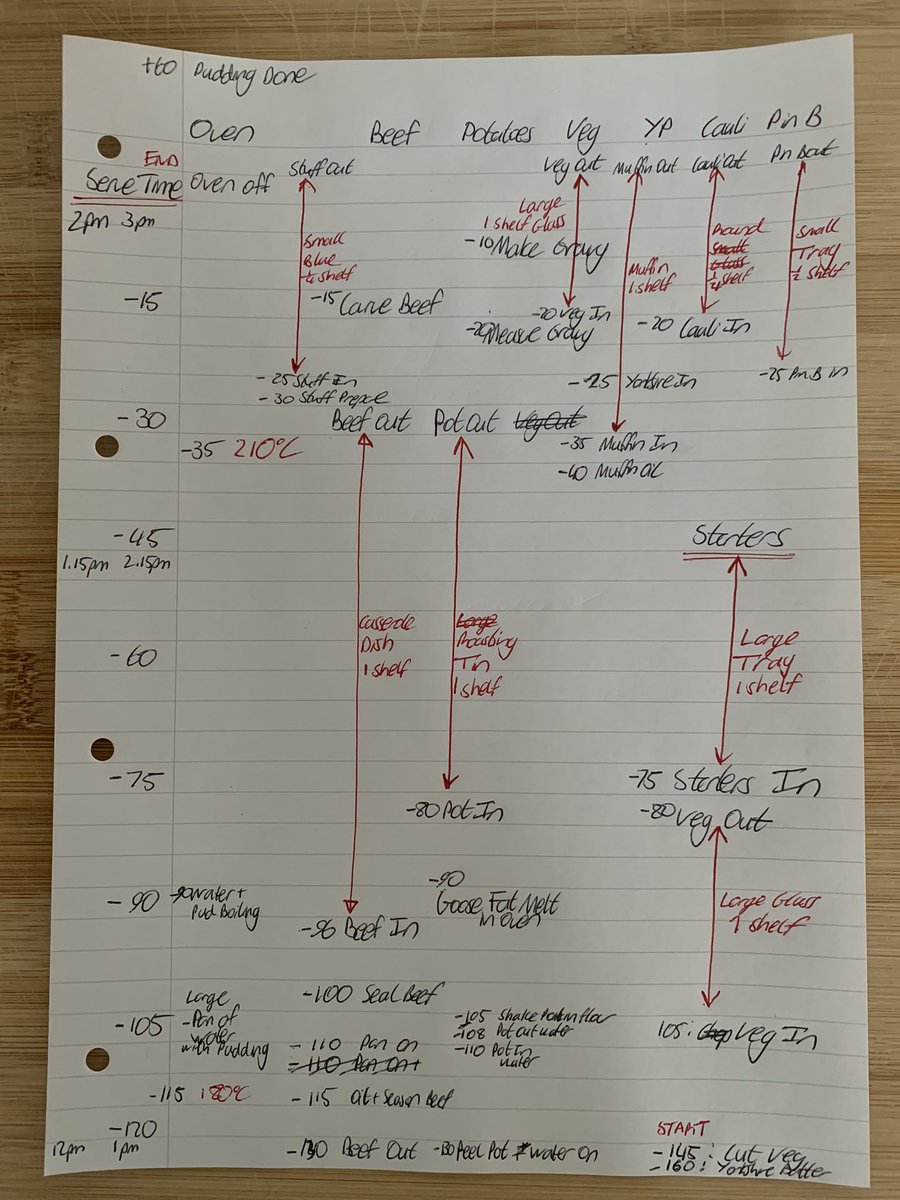 +60 Pudding Done
Oven Beef Potatoes Veg YP Cauli Pin B
END
Serve Time Oven off Stuff Out Veg Out Muffin Out Cauli Out Pin B out
2pm 3pm
Large
1 shelf Glass
-10 Make Gravy
Small
Blue
1/4 shelf
Muffin
1 shelf
Round
Small
Glass
1/4
shelf
Small
Tray
1/2 shelf
-15 -15 Carve Beef
-20 Veg In
-20 Measure Gravy
-20 Cauli In
-25 Stuff In -25 Yorkshire In -25 Pin B in
-30 Stuff Prepare
-30 Beef Out Pot Out Veg Out
-35 210°C -35 Muffin In
-40 Muffin Oil
-45 Starters
1.15pm 2.15pm
Casserole
Dish
1 shelf
Large
Roasting
Tin
1 shelf
Large
Tray
1 shelf
-60
-75 -75 Starters In
-80 Pot In -80 Veg Out
-90 -90 Water +
Pud Boiling
-90
Goose Fat Melt
in Oven
Large Glass
1 shelf
-96 Beef In
-100 Seal Beef
Large
-Pan of
water
with Pudding
-105 -105 Shake Pot in flour
-108 Pot out water
-110 Pot In
water
105: Veg In
-110 Pan on
-110 Pan On +
-115 180°C -115 Oil + Season Beef
-120 START
12pm 1pm -130 Beef Out -130 Peel Pot water on -145: Cut Veg
-160: Yorkshire Batter